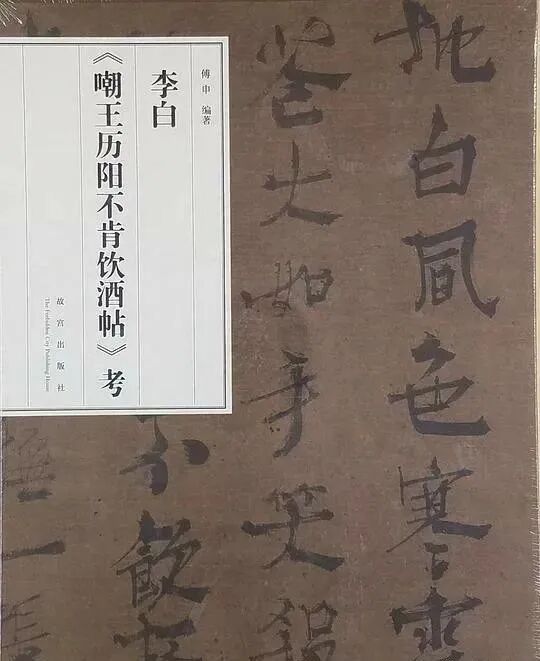 地白風色寒雪
花大如手笑殺
不飲
撫一
傅申 编著
李白
《嘲王历阳不肯饮酒帖》考
故宫出版社
The Forbidden City Publishing House